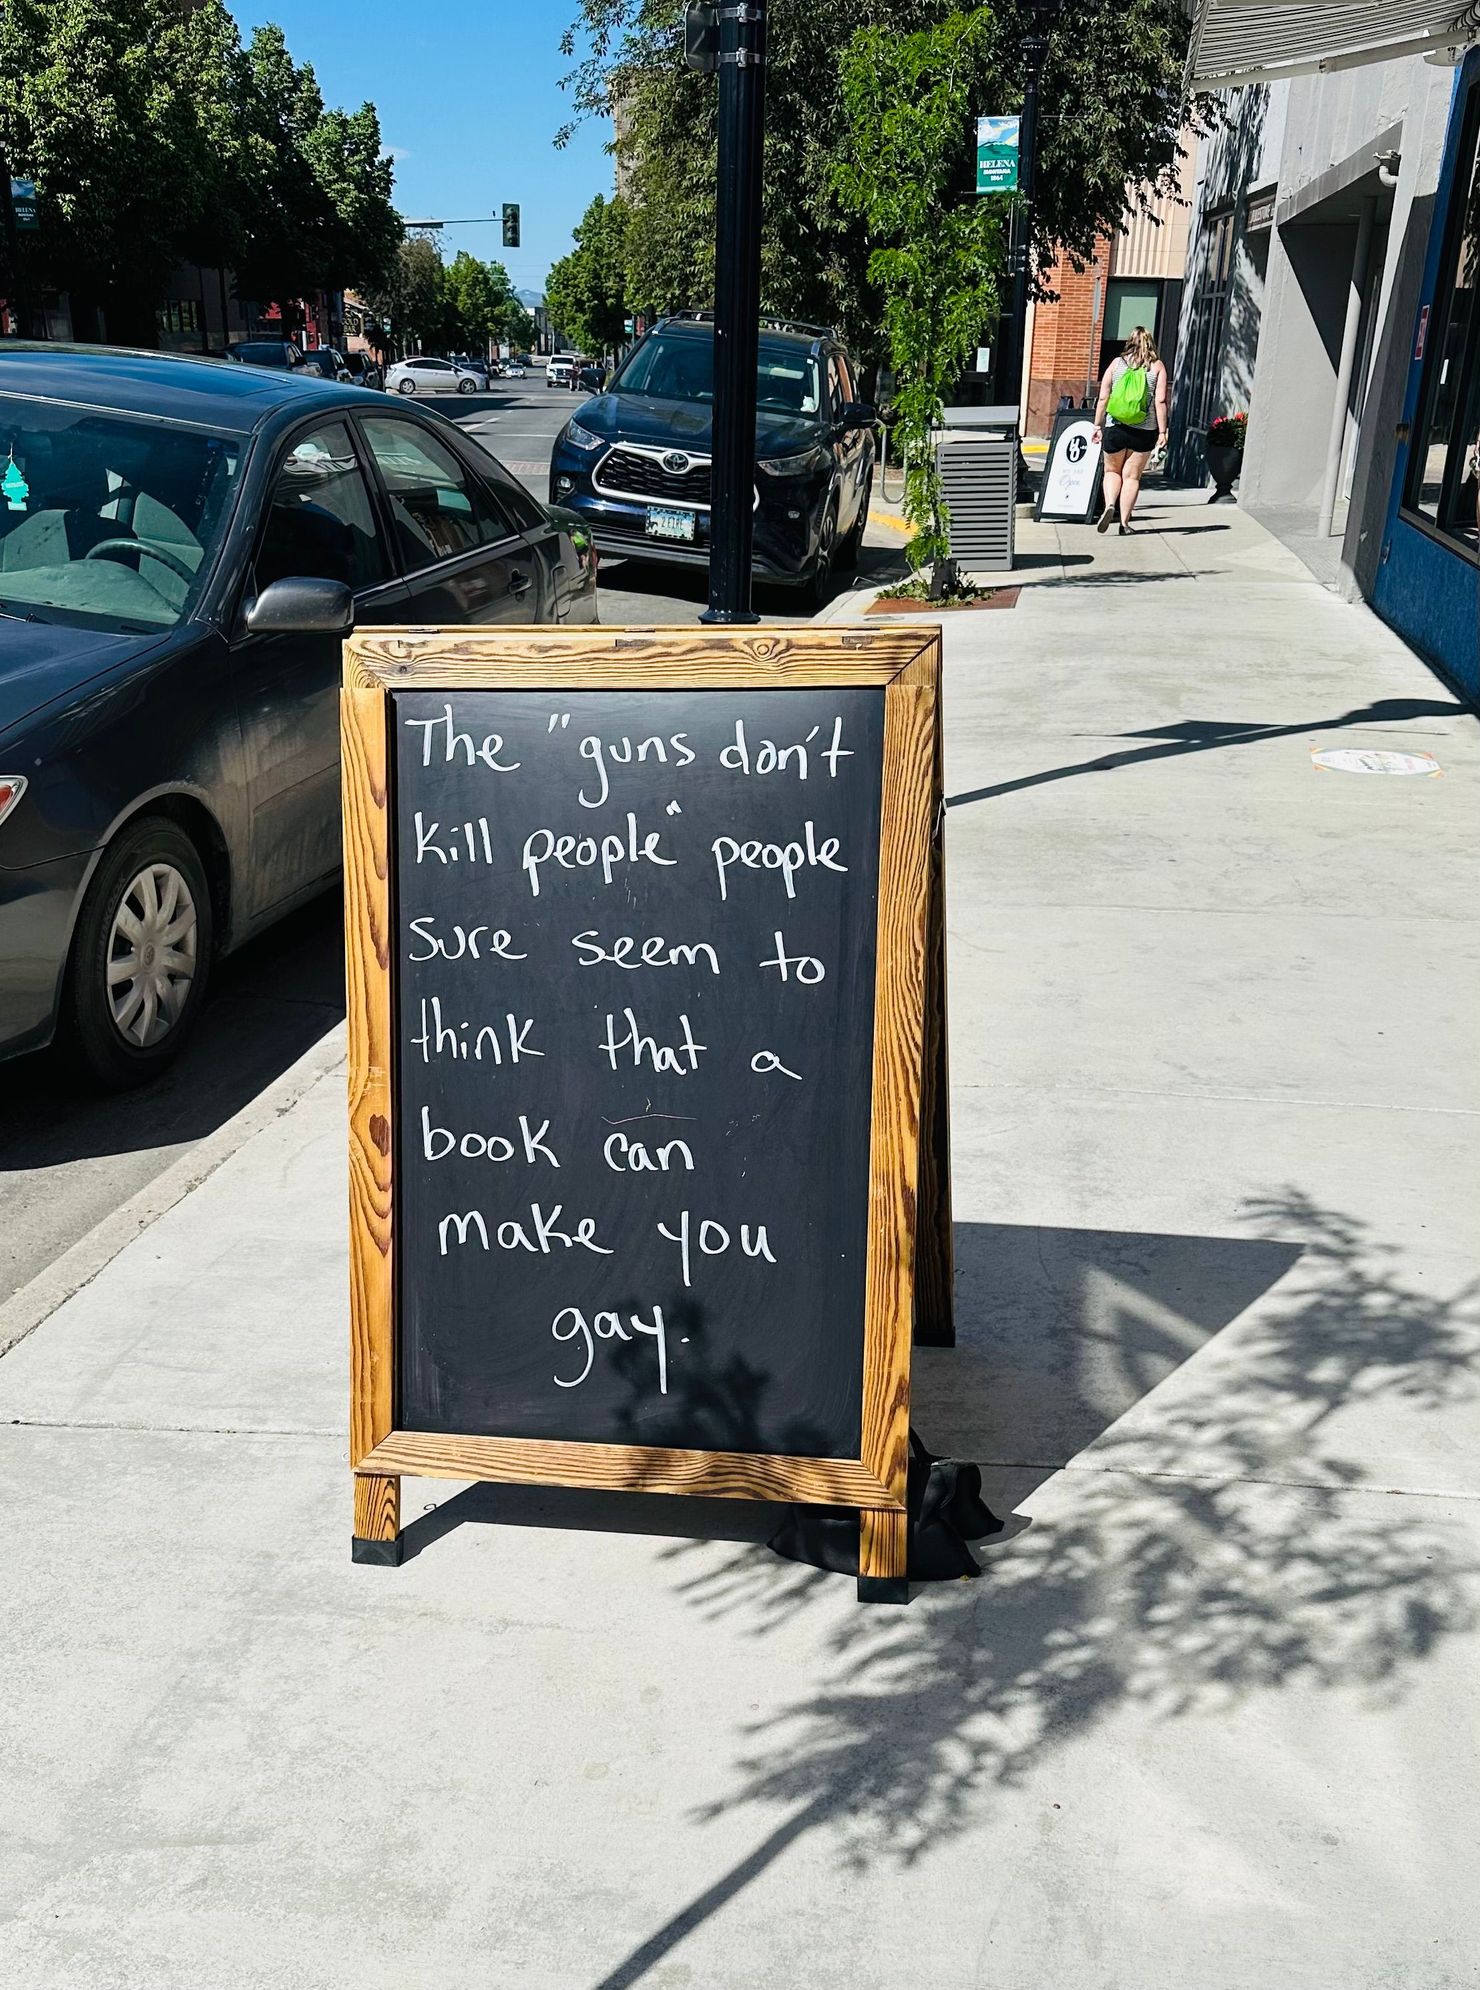 HELENA
MONTANA
1864
HELENA
The "guns don't
kill people" people
sure seem to
think that a
book can
make you
gay.
Open